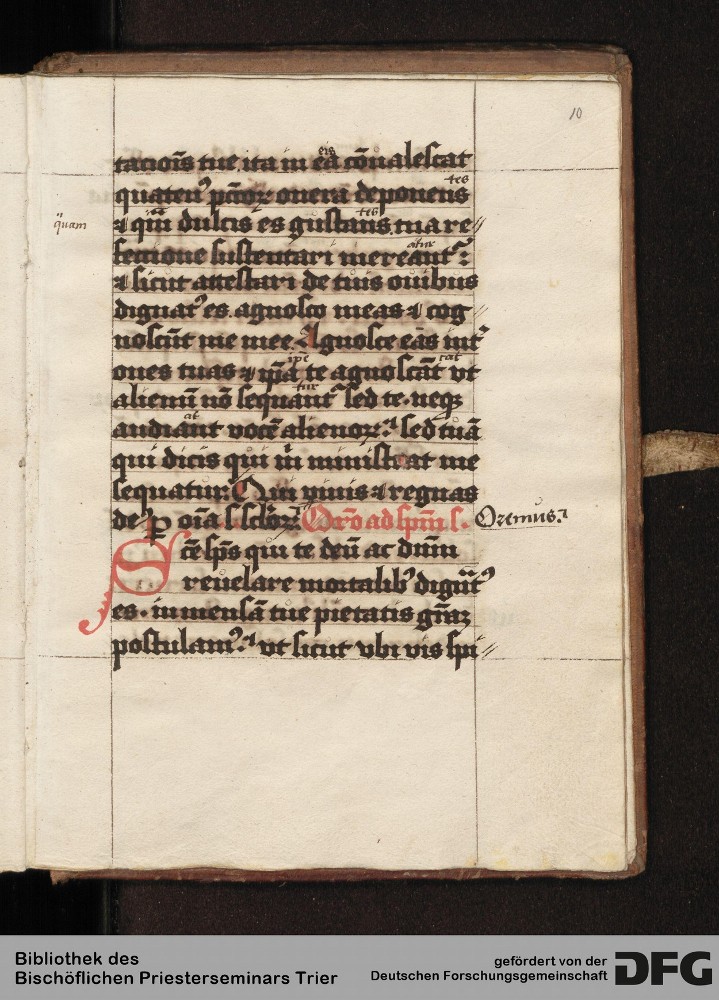 10
taciōis tue ita in eā cōualescat
eis
quatenꝰ pctōꝝ onera deponens
tes
⁊ qm̄ dulcis es gustans tua re⸗
quam
tes
fectione sustentari mereantᷣ:
atur
⁊ sicut attestari de tuis ouibus
dignatꝰ es. agnosco meas ⁊ cog⸗
noscūt me mee. Agnosce eas int̕
ones tuas ⁊ ip̄a te agnoscāt vt
ip̄e
cat
alienū nō sequantᷣ sed te. neqꝫ
tur
audiant vocē alienoꝝ: sed tuā
at
qui dicis qui m̄ ministrat me
sequatur. Qui viuis ⁊ regnas
deꝰ ꝑ oīa s. sclōꝝ. Orō ad spm̄ s.
Oremus.
Scē sp̄s qui te deū ac dn̄m
reuelare mortalibꝰ dignatꝰ
es. inmensā tue pietatis gr̄am
postulamꝰ. vt sicut vbi vis spi⸗
Bibliothek des
Bischöflichen Priesterseminars Trier
gefördert von der
Deutschen Forschungsgemeinschaft
DFG